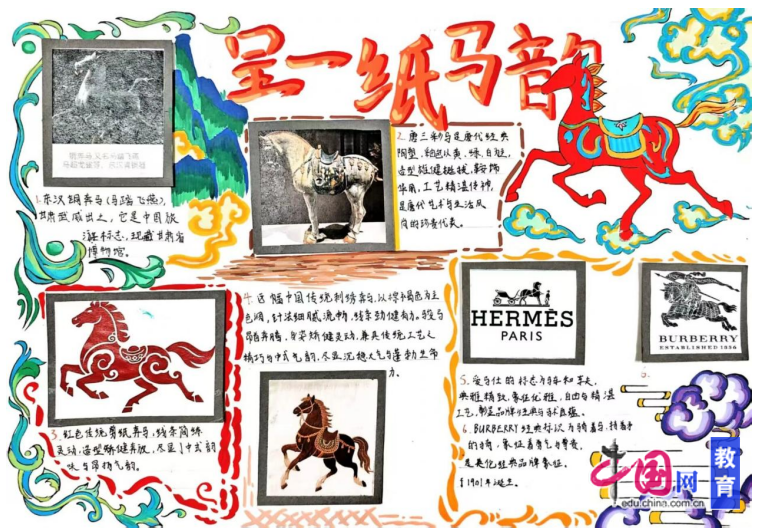 呈一纸马韵
1. 东汉铜奔马(马踏飞燕),
甘肃武威出土, 它是中国旅
游标志, 现藏甘肃省
博物馆。
2. 唐三彩马是唐代经典
陶塑, 釉色以黄、绿、白为主,
造型雄健挺拔, 鞍饰
华丽, 工艺精湛传神,
是唐代艺术与生活风
貌的珍贵代表。
3. 红色传统剪纸奔马, 线条简练
灵动, 造型矫健奔放, 尽显中式韵
味与吉祥气韵。
4. 这幅中国传统刺绣奔马, 以棕褐色为主
色调, 针法细腻流畅, 线条劲健有力。骏马
昂首奔腾, 身姿矫健灵动, 兼具传统工艺之
精巧与中式气韵, 尽显沉稳大气与蓬勃生命
力。
HERMÈS
PARIS
BURBERRY
ESTABLISHED 1856
5. 爱马仕的标志为马车和车夫,
典雅精致, 象征优雅、自由与精湛
工艺, 彰显品牌经典与
6.
6. BURBERRY 经典标识为骑着马, 持着矛
的骑, 象征着勇气与尊贵,
是英伦经典品牌象征。
于1901年诞生。
中国网
教育
edu.china.com.cn